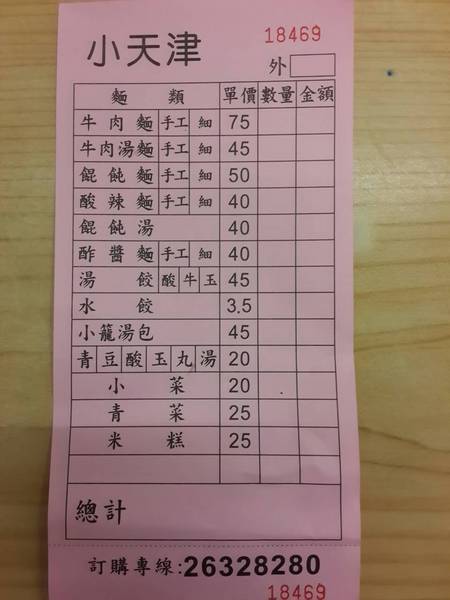 18469
小天津
外
麵類 單價 數量 金額
牛肉麵 手工 細 75
牛肉湯麵 手工 細 45
餛飩麵 手工 細 50
酸辣麵 手工 細 40
餛飩湯 40
酢醬麵 手工 細 40
湯餃 酸 牛 玉 45
水餃 3.5
小籠湯包 45
青 豆 酸 玉 丸 湯 20
小菜 20
青菜 25
米糕 25
總計
訂購專線:26328280
18469